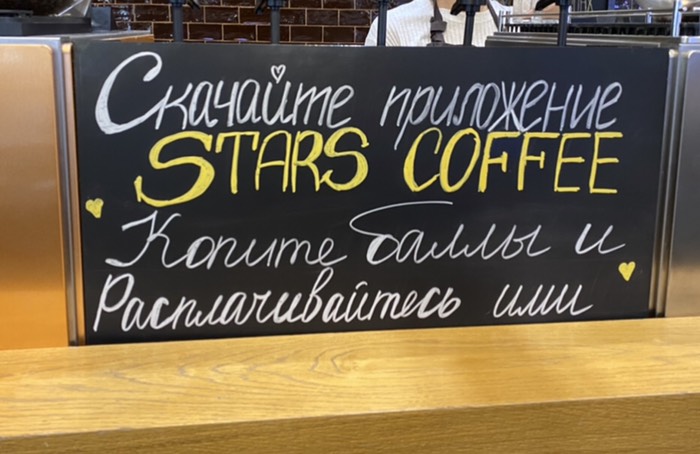 Скачайте приложение
STARS COFFEE
Копите баллы и
Расплачивайтесь ими